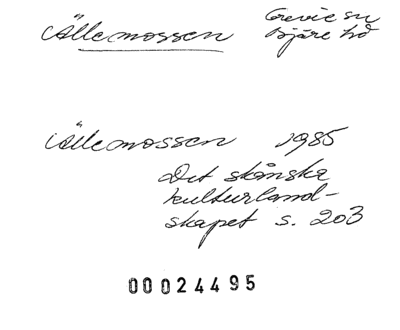 Ällemossen Grevie sn
Bjäre hd
Ällemossen 1985
Det skånska
kulturland-
skapet s. 203
00024495